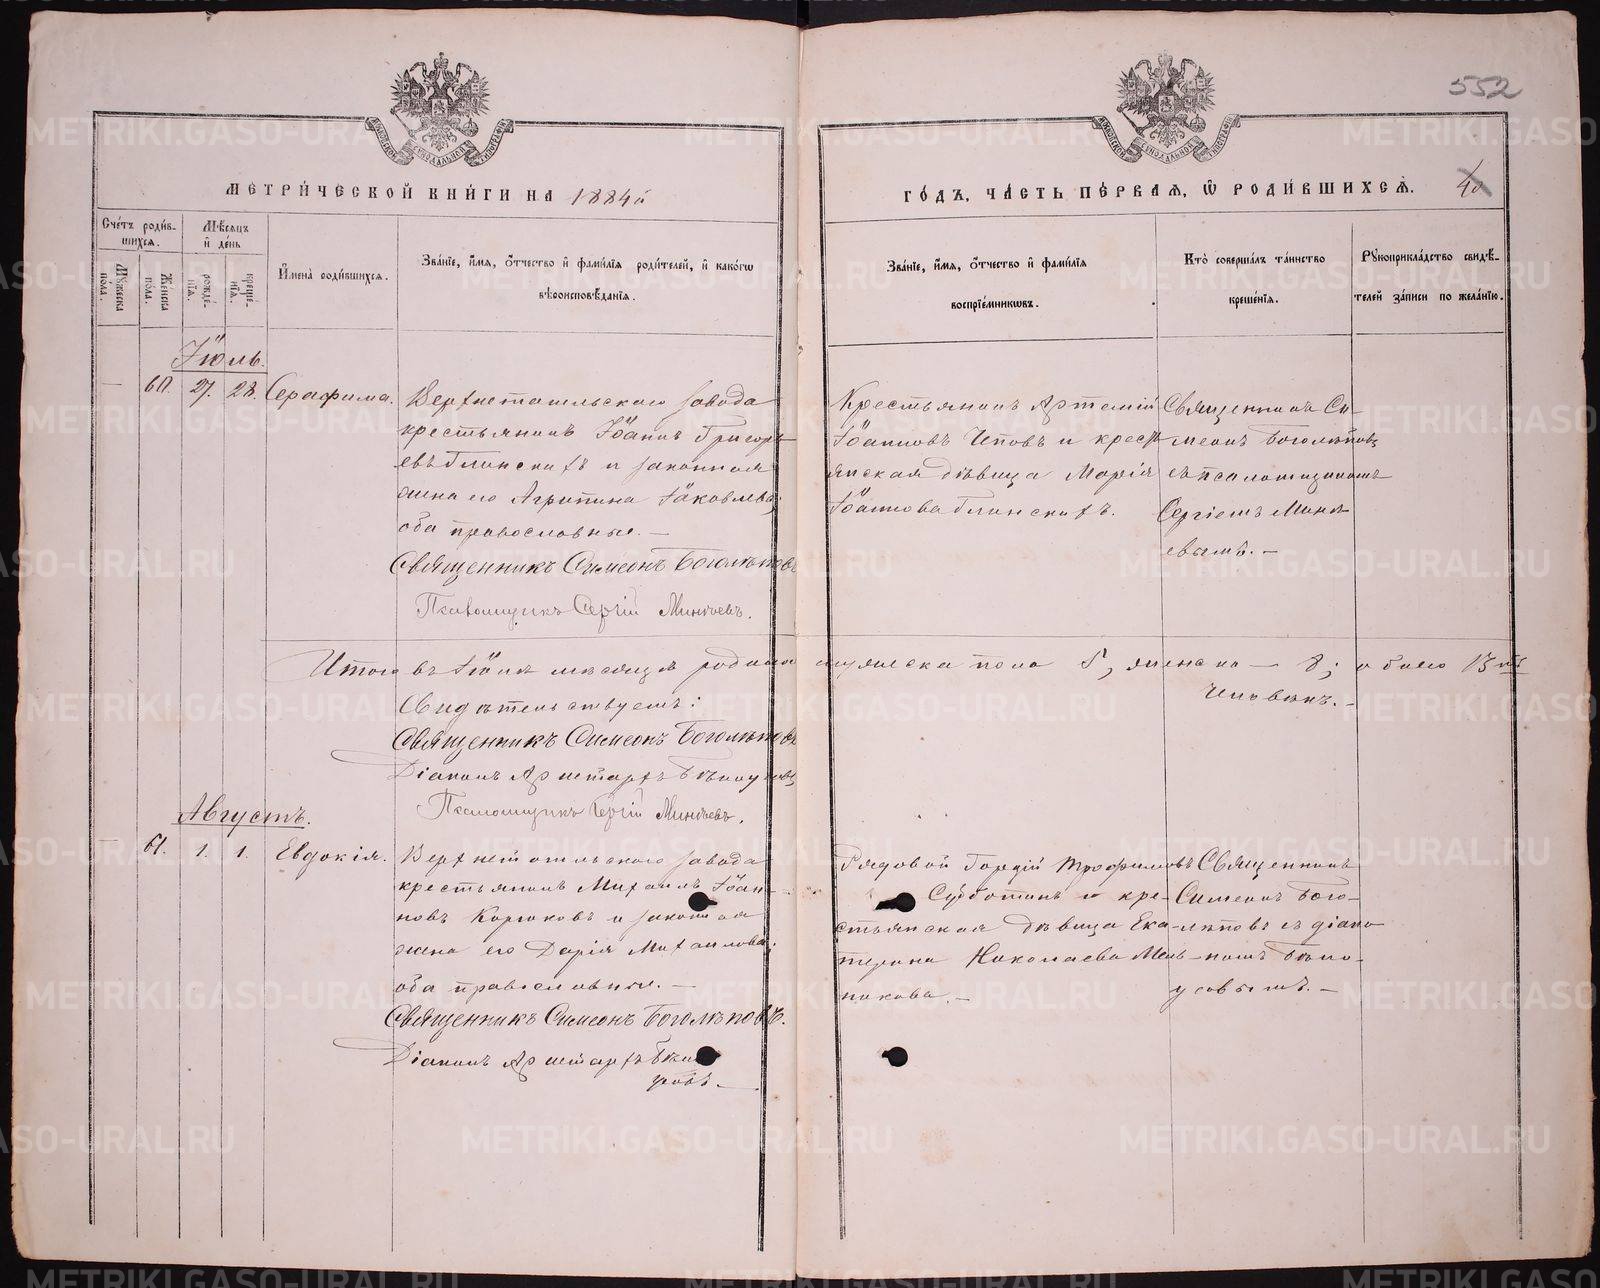 552
МЕТРИ́ЧЕСКОЙ КНИ́ГИ НА 1884й
ГО́ДЪ, ЧА́СТЬ ПЕ́РВАЯ, Ѿ РОДИ́ВШИХСѦ.
40
Сче́тъ роди́в-
шихся.
Мѣ́сяцъ
и де́нь
Мꙋ́жеска пола.
Же́нска по́ла.
рожде́-
нїя.
креще́-
нїя.
И҆мена̀ роди́вшихся.
Зва́нїе, и҆́мя, ѻ҆́тчество и҆ фами́лїя роди́телей, и҆ како́гѡ
вѣроисповѣ́данїя.
Зва́нїе, и҆́мя, ѻ҆́тчество и҆ фами́лїя
воспрїе́мникѡвъ.
Кто̀ соверша́лъ та́инство
креще́нїя.
Рꙋкоприкла́дство свидѣ́-
телей за́писи по жела́нїю.
Іюль.
— 60. 27. 28. Серафима.
Верхнетагильскаго завода
крестьянинъ Іоаннъ Григорь-
евъ Глинскихъ и законная
жена его Агрипина Іаковлева;
оба православные. —
Священникъ Симеонъ Боголѣповъ
Псаломщикъ Сергій Минѣевъ.
Крестьянинъ Артемій
Іоанновъ Чеповъ и кресть-
янская дѣвица Марія
Іоаннова Глинскихъ.
Священникъ Си-
меонъ Боголѣповъ
съ псаломщикомъ
Сергіемъ Минѣ-
евымъ. —
Итого въ Іюлѣ мѣсяцѣ родилось мужеска пола 5, женска — 8; обоего 13ть
человѣкъ. —
Свидѣтельствуемъ:
Священникъ Симеонъ Боголѣповъ
Діаконъ Аристархъ Бѣлоусовъ
Псаломщикъ Сергій Минѣевъ.
Августъ.
— 61. 1. 1. Евдокія.
Верхнетагильскаго завода
крестьянинъ Михаилъ Іоан-
новъ Корюковъ и законная
жена его Дарія Михаилова;
оба православные. —
Священникъ Симеонъ Боголѣповъ.
Діаконъ Аристархъ Бѣло
усовъ. —
Рядовой Гордій Трофимовъ
Субботинъ и кре-
стьянская дѣвица Ека-
терина Николаева Мель-
никова. —
Священникъ
Симеонъ Бого-
лѣповъ съ діако-
номъ Бѣло-
усовымъ. —
METRIKI.GASO-URAL.RU